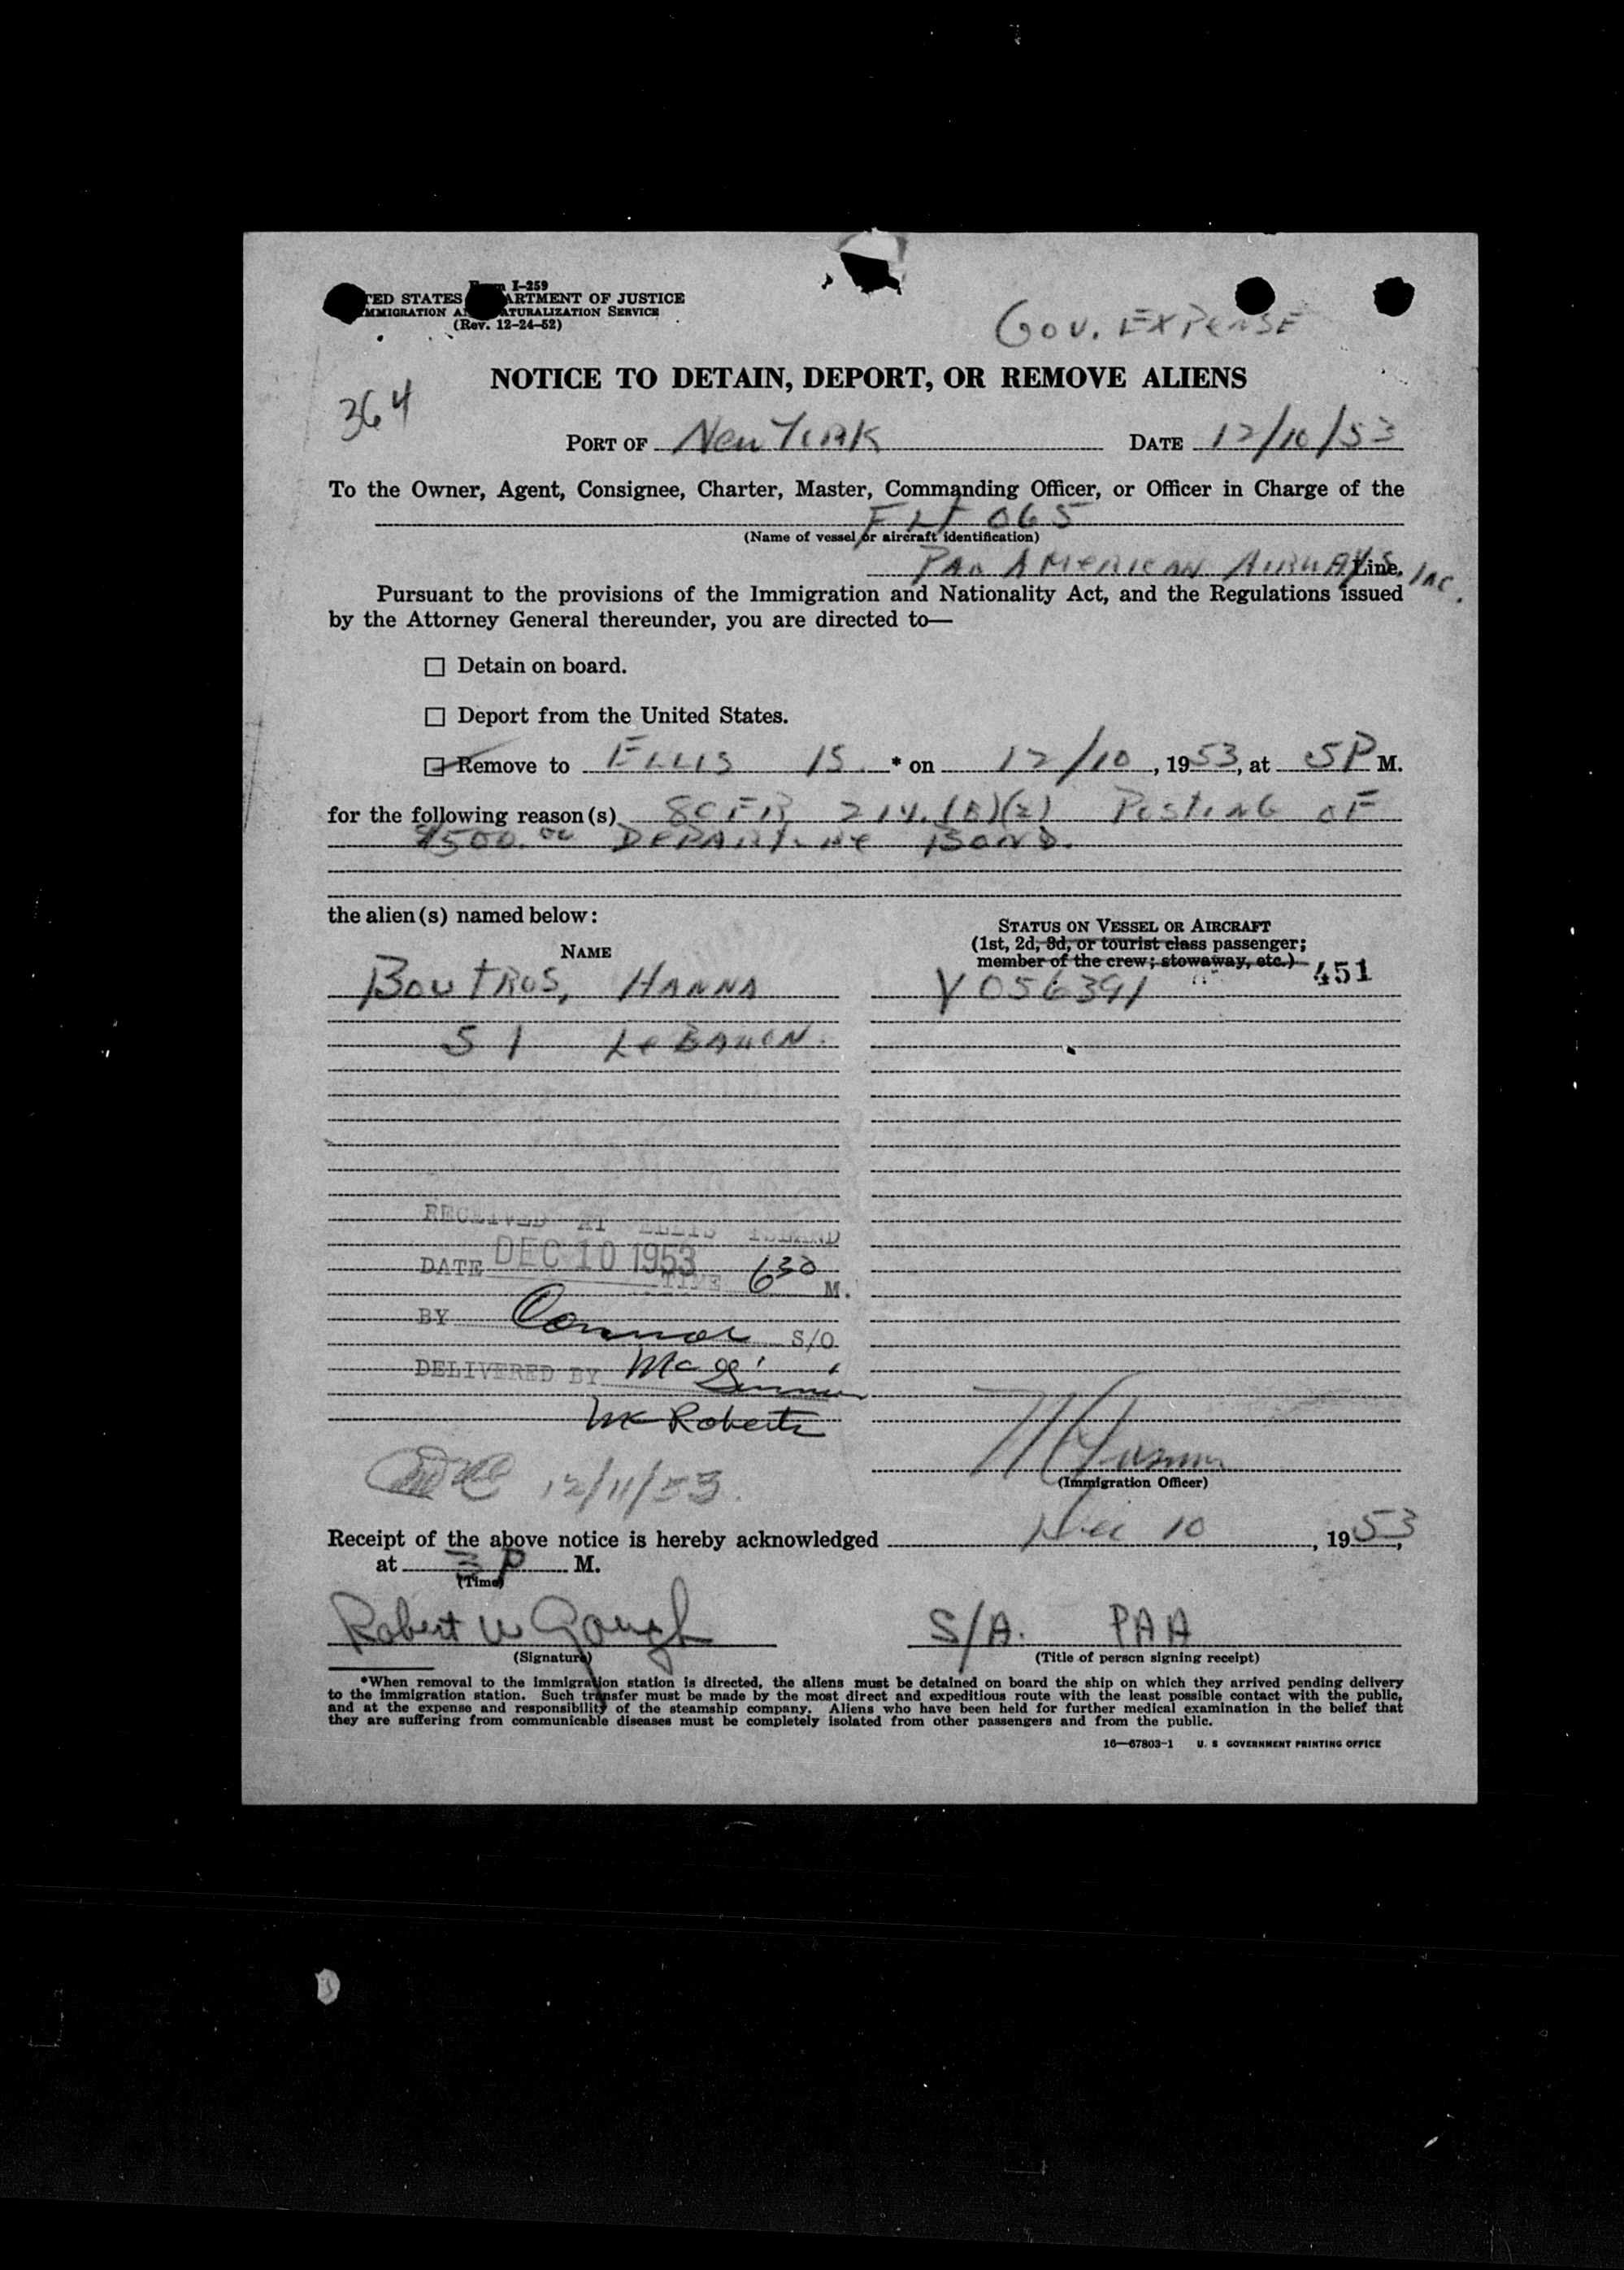 I-259
TED STATES ARTMENT OF JUSTICE
MMIGRATION A TURALIZATION SERVICE
(Rev. 12-24-52)
GOV. EXPENSE
NOTICE TO DETAIN, DEPORT, OR REMOVE ALIENS
364
PORT OF New York DATE 12/10/53
To the Owner, Agent, Consignee, Charter, Master, Commanding Officer, or Officer in Charge of the
FLT 065
(Name of vessel or aircraft identification)
PAN AMERICAN AIRWAYS Line, Inc.
Pursuant to the provisions of the Immigration and Nationality Act, and the Regulations issued
by the Attorney General thereunder, you are directed to—
☐ Detain on board.
☐ Deport from the United States.
☐ Remove to ELLIS IS. * on 12/10, 1953, at 5P M.
for the following reason(s) 8CFR 214.(B)(2) POSTING OF
$500.00 DEPARTURE BOND.
the alien(s) named below:
STATUS ON VESSEL OR AIRCRAFT
NAME
(1st, 2d, 3d, or tourist class passenger;
member of the crew; stowaway, etc.) 451
BOUTROS, HANNA V056391
51 LEBANON.
RECEIVED AT ELLIS ISLAND
DATE DEC 10 1953 TIME 6 30 M.
BY Connor S/O
DELIVERED BY
McRoberts
12/11/53.
(Immigration Officer)
Receipt of the above notice is hereby acknowledged Dec 10, 1953,
at 3 P M.
(Time)
Robert W Gough S/A. PAA
(Signature) (Title of person signing receipt)
*When removal to the immigration station is directed, the aliens must be detained on board the ship on which they arrived pending delivery
to the immigration station. Such transfer must be made by the most direct and expeditious route with the least possible contact with the public,
and at the expense and responsibility of the steamship company. Aliens who have been held for further medical examination in the belief that
they are suffering from communicable diseases must be completely isolated from other passengers and from the public.
16—67803-1 U. S GOVERNMENT PRINTING OFFICE